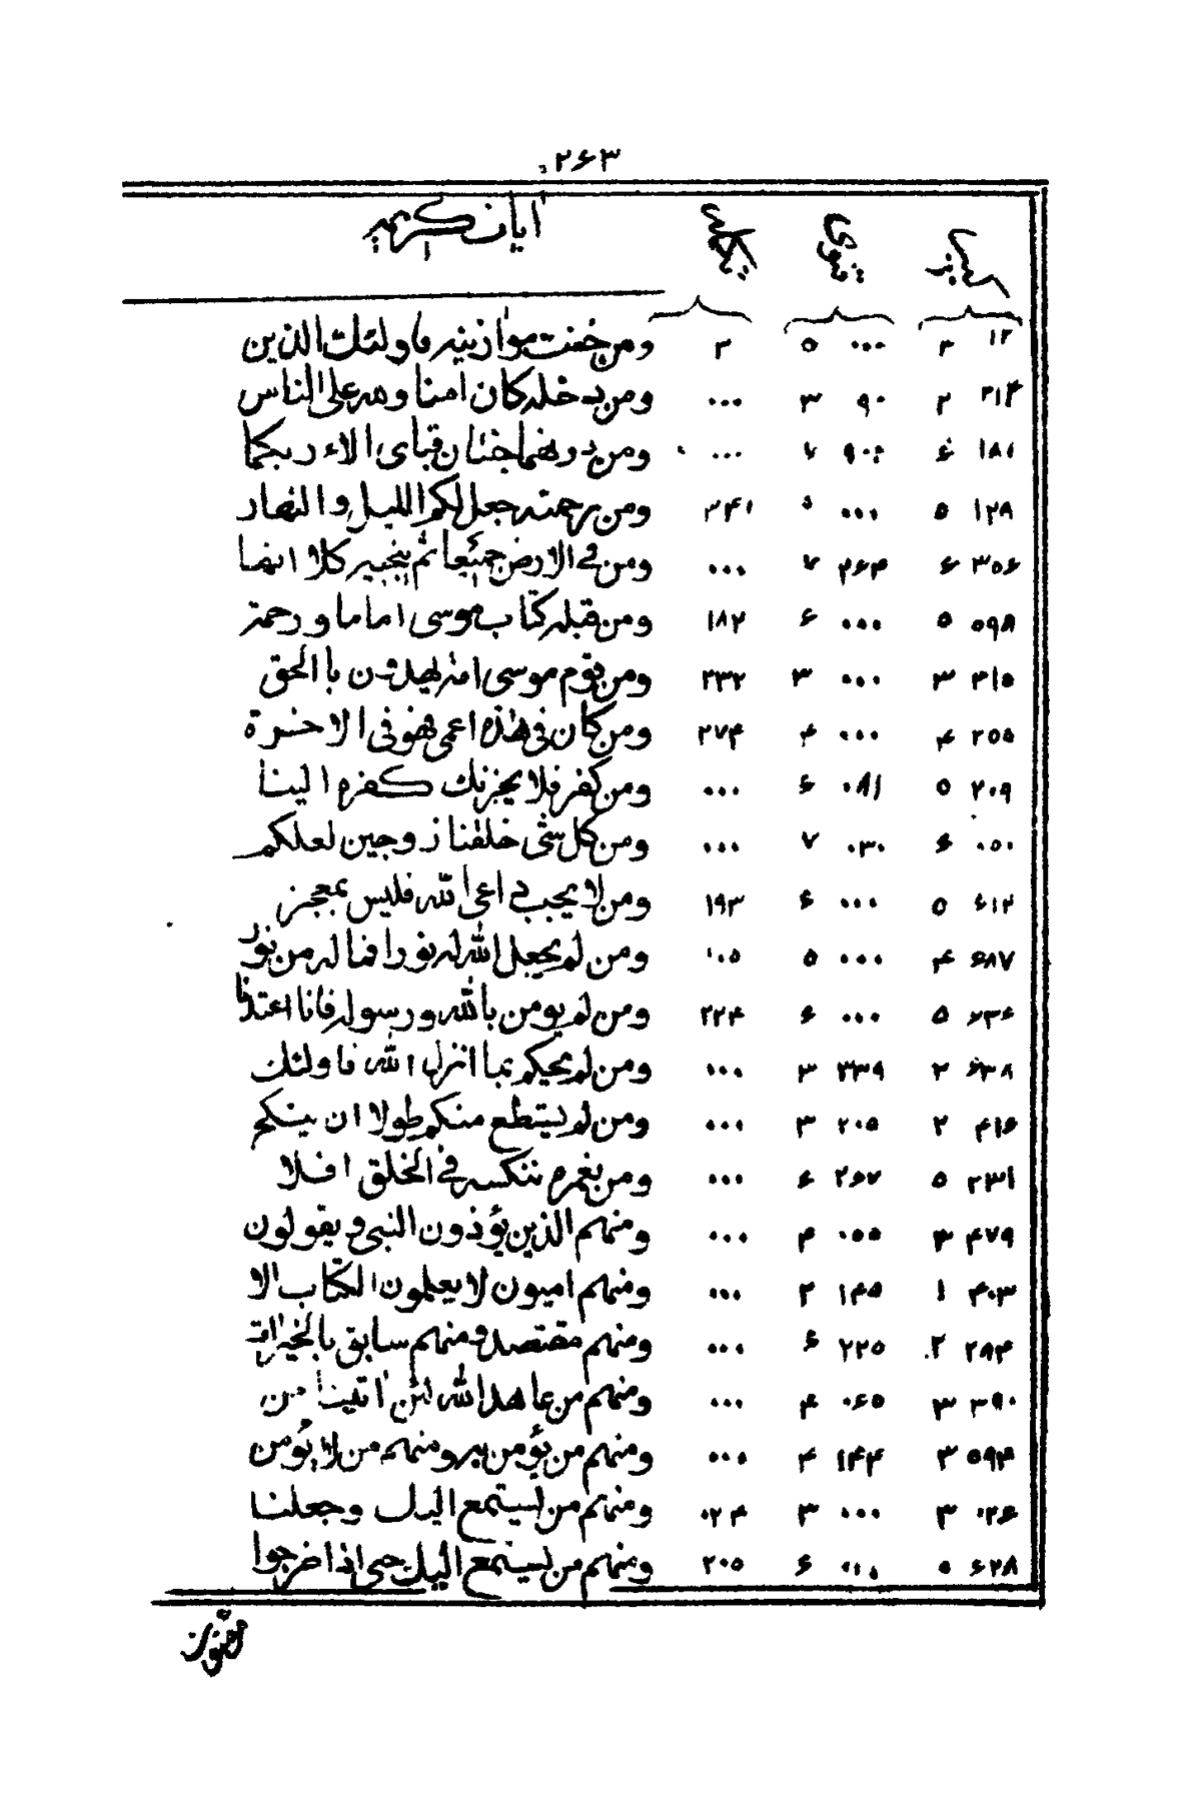 ۲۶۳
ایات کریمه
۱۲ ۳ ۰۰۰ ۵ ۲ ومن خفت موازینه فاولئك الذین
۳۱۴ ۲ ۹۰ ۳ ۰۰۰ ومن دخله کان امنا وﷲ علی الناس
۱۸۱ ۶ ۹۰۲ ۷ ۰۰۰ ومن دونهما جنتان فبای الاء ربکما
۱۲۹ ۵ ۰۰۰ ۲۴۱ ومن رحمته جعل لکم اللیل والنهار
۳۵۶ ۶ ۲۶۴ ۷ ۰۰۰ ومن فی الارض جمیعا ثم ینجیه کلا انها
۵۹۸ ۵ ۰۰۰ ۶ ۱۸۲ ومن قبله کتاب موسی اماما ورحمة
۳۱۵ ۳ ۰۰۰ ۳ ۲۳۲ ومن قوم موسی امة یهدون باالحق
۲۵۵ ۴ ۰۰۰ ۴ ۲۷۴ ومن کان فی هذه اعمی فهو فی الاخرة
۲۰۹ ۵ ۰۸۱ ۶ ۰۰۰ ومن کفر فلا یحزنك کفره الینا
۰۵۰ ۶ ۰۳۰ ۷ ۰۰۰ ومن کل شئ خلقنا زوجین لعلکم
۶۱۲ ۵ ۰۰۰ ۶ ۱۹۳ ومن لا یجب داعی الله فلیس بمعجز
۶۸۷ ۴ ۰۰۰ ۵ ۱۰۵ ومن لم یجعل الله له نورا فما له من نور
۷۳۶ ۵ ۰۰۰ ۶ ۲۲۴ ومن لم یومن بالله ورسوله فانا اعتدنا
۶۳۸ ۲ ۲۳۹ ۳ ۰۰۰ ومن لم یحکم بما انزل الله فاولئك
۴۱۶ ۲ ۲۰۵ ۳ ۰۰۰ ومن لم یستطع منکم طولا ان ینکح
۲۳۱ ۵ ۲۶۷ ۶ ۰۰۰ ومن نعمره ننکسه فی الخلق افلا
۴۷۹ ۳ ۰۵۵ ۴ ۰۰۰ ومنهم الذین یؤذون النبی ویقولون
۴۰۳ ۱ ۱۴۵ ۲ ۰۰۰ ومنهم امیون لا یعلمون الکتاب الا
۲۸۴ ۲ ۲۲۵ ۶ ۰۰۰ ومنهم مقتصد ومنهم سابق بالخیرات
۳۹۰ ۳ ۰۶۵ ۴ ۰۰۰ ومنهم من عاهد الله لئن اتینا من
۵۹۴ ۳ ۱۴۴ ۴ ۰۰۰ ومنهم من یؤمن به ومنهم من لا یؤمن
۰۲۶ ۳ ۰۰۰ ۳ ۰۲۴ ومنهم من لیستمع الیك وجعلنا
۶۲۸ ۵ ۰۰۰ ۶ ۲۰۵ ومنهم من لیستمع الیك حتی اذا خرجوا